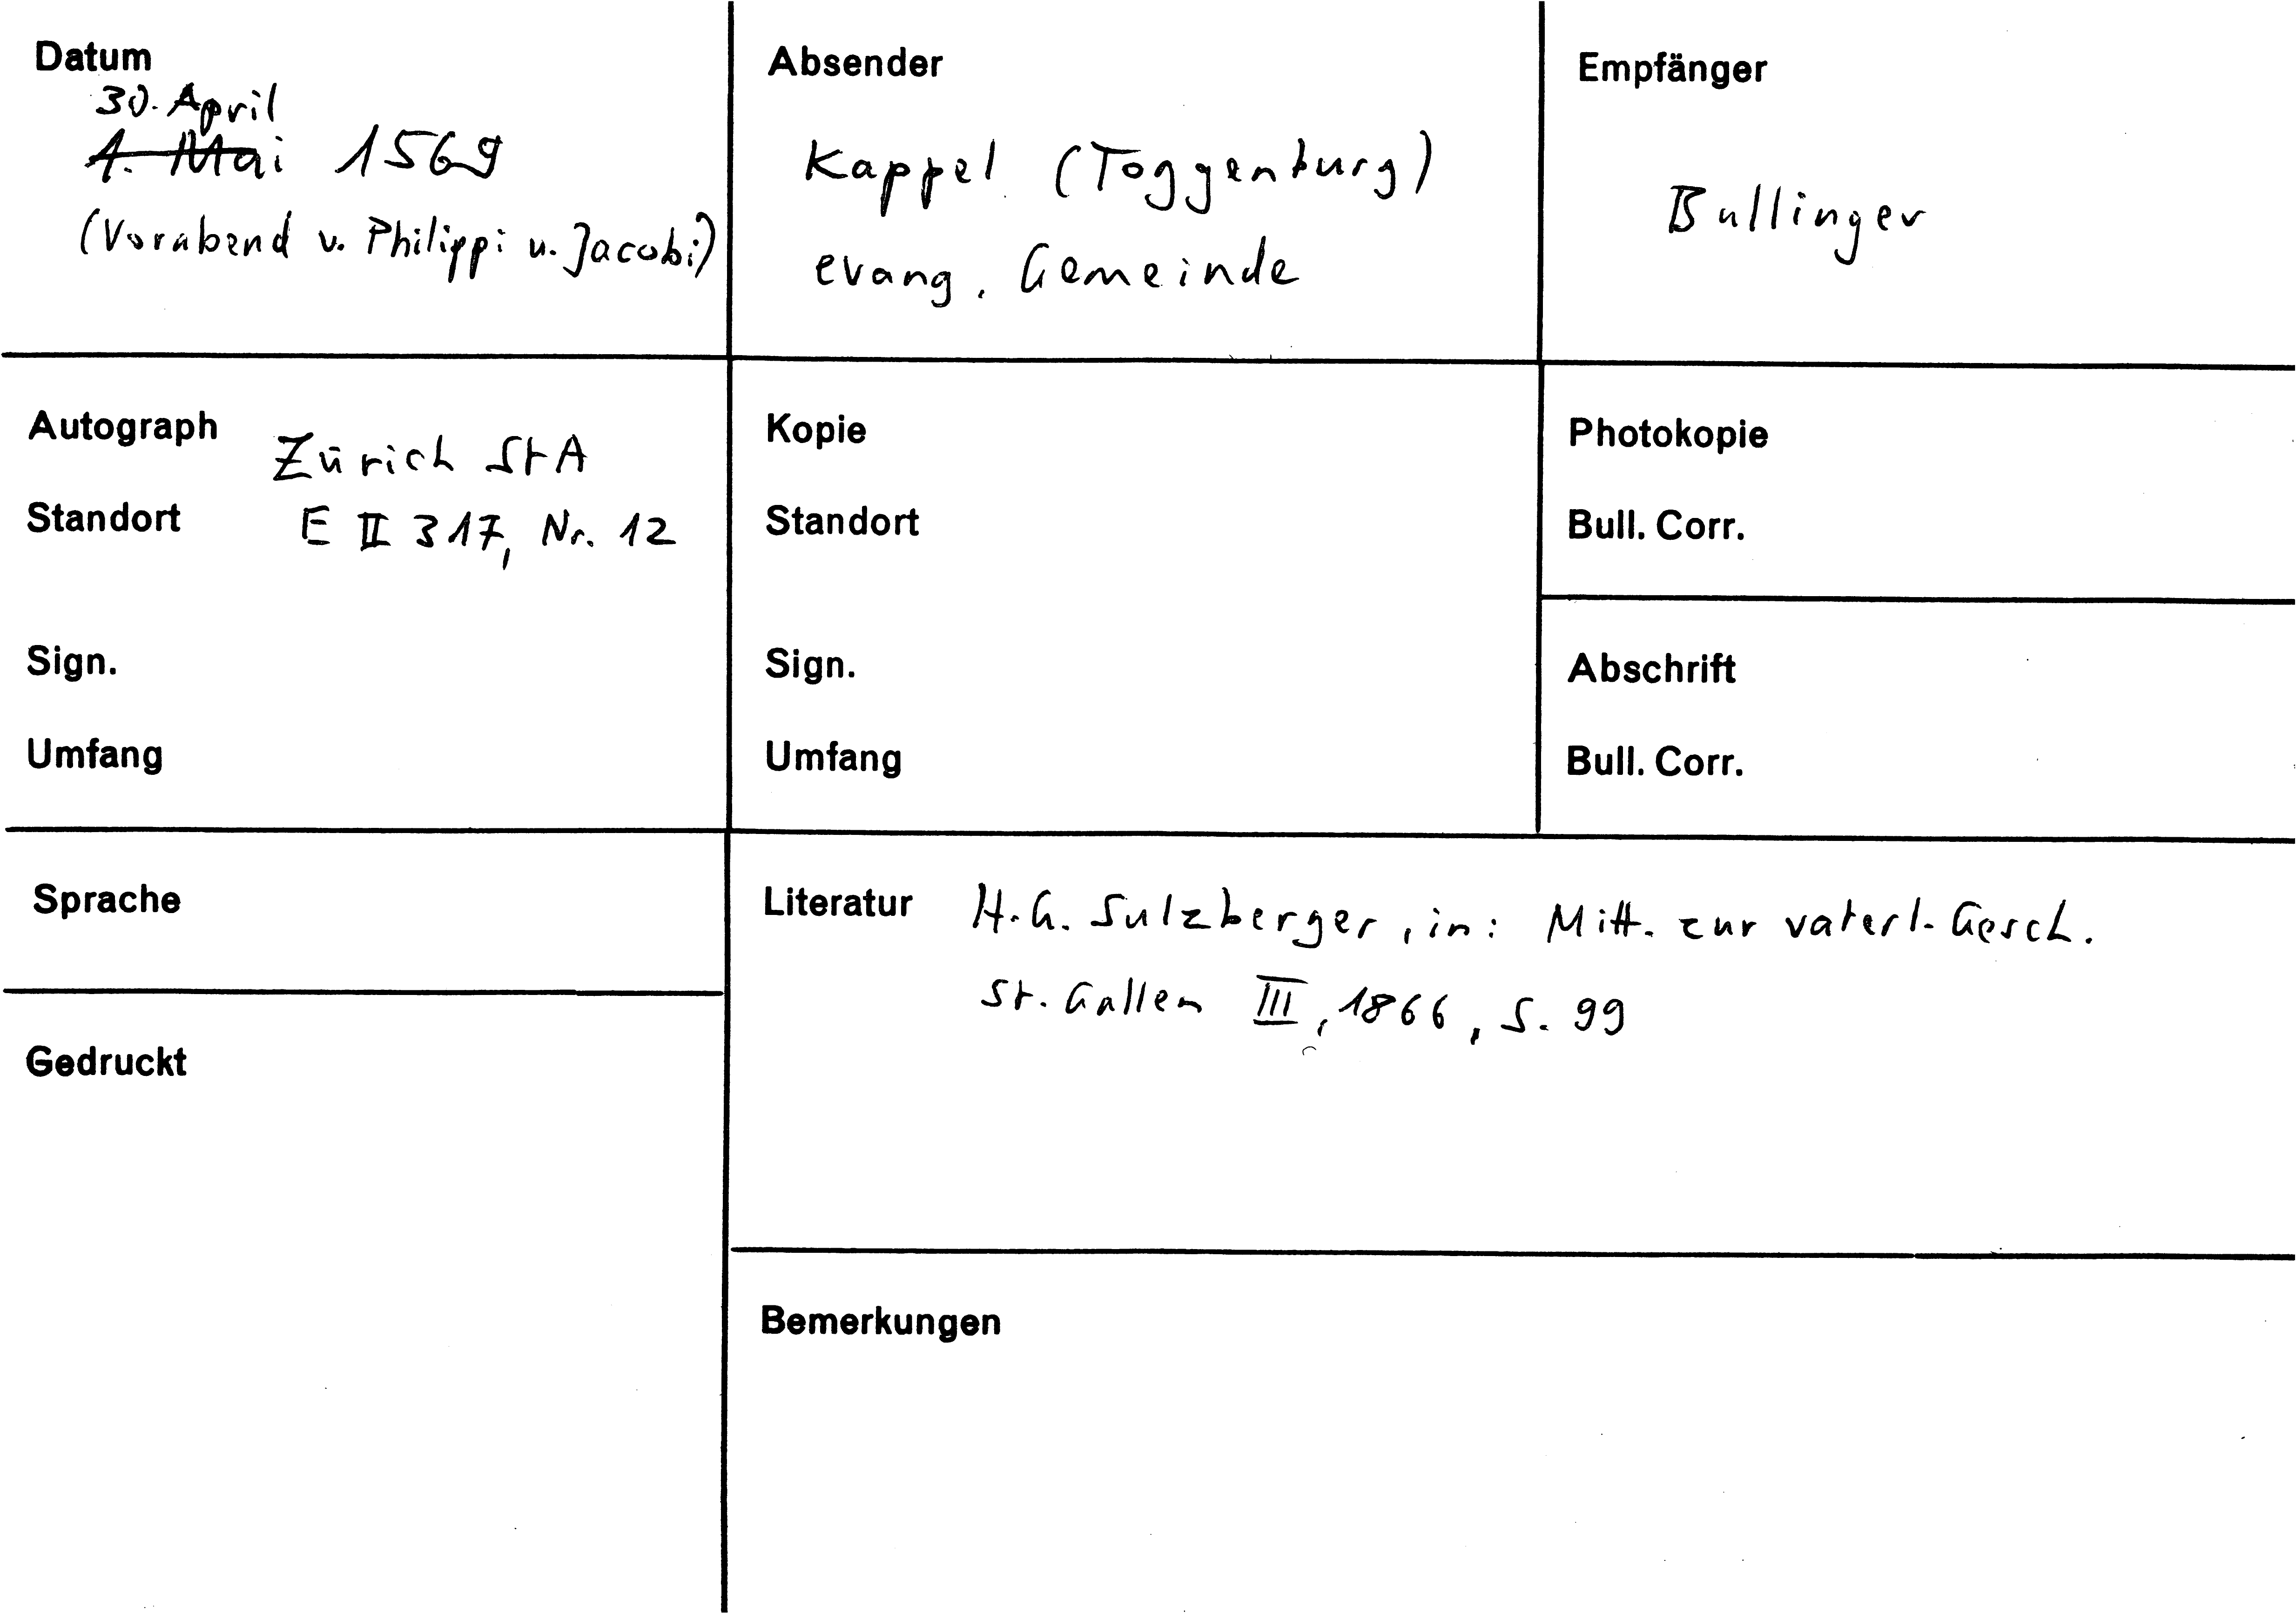 Datum
30. April
1. Mai 1569
(Vorabend v. Philippi u. Jacobi)
Absender
Kappel (Toggenburg)
evang. Gemeinde
Empfänger
Bullinger
Autograph Zürich StA
Standort E II 317, Nr. 12
Sign.
Umfang
Kopie
Standort
Sign.
Umfang
Photokopie
Bull. Corr.
Abschrift
Bull. Corr.
Sprache
Gedruckt
Literatur H. G. Sulzberger, in: Mitt. zur vaterl. Gesch.
St. Gallen III, 1866, S. 99
Bemerkungen